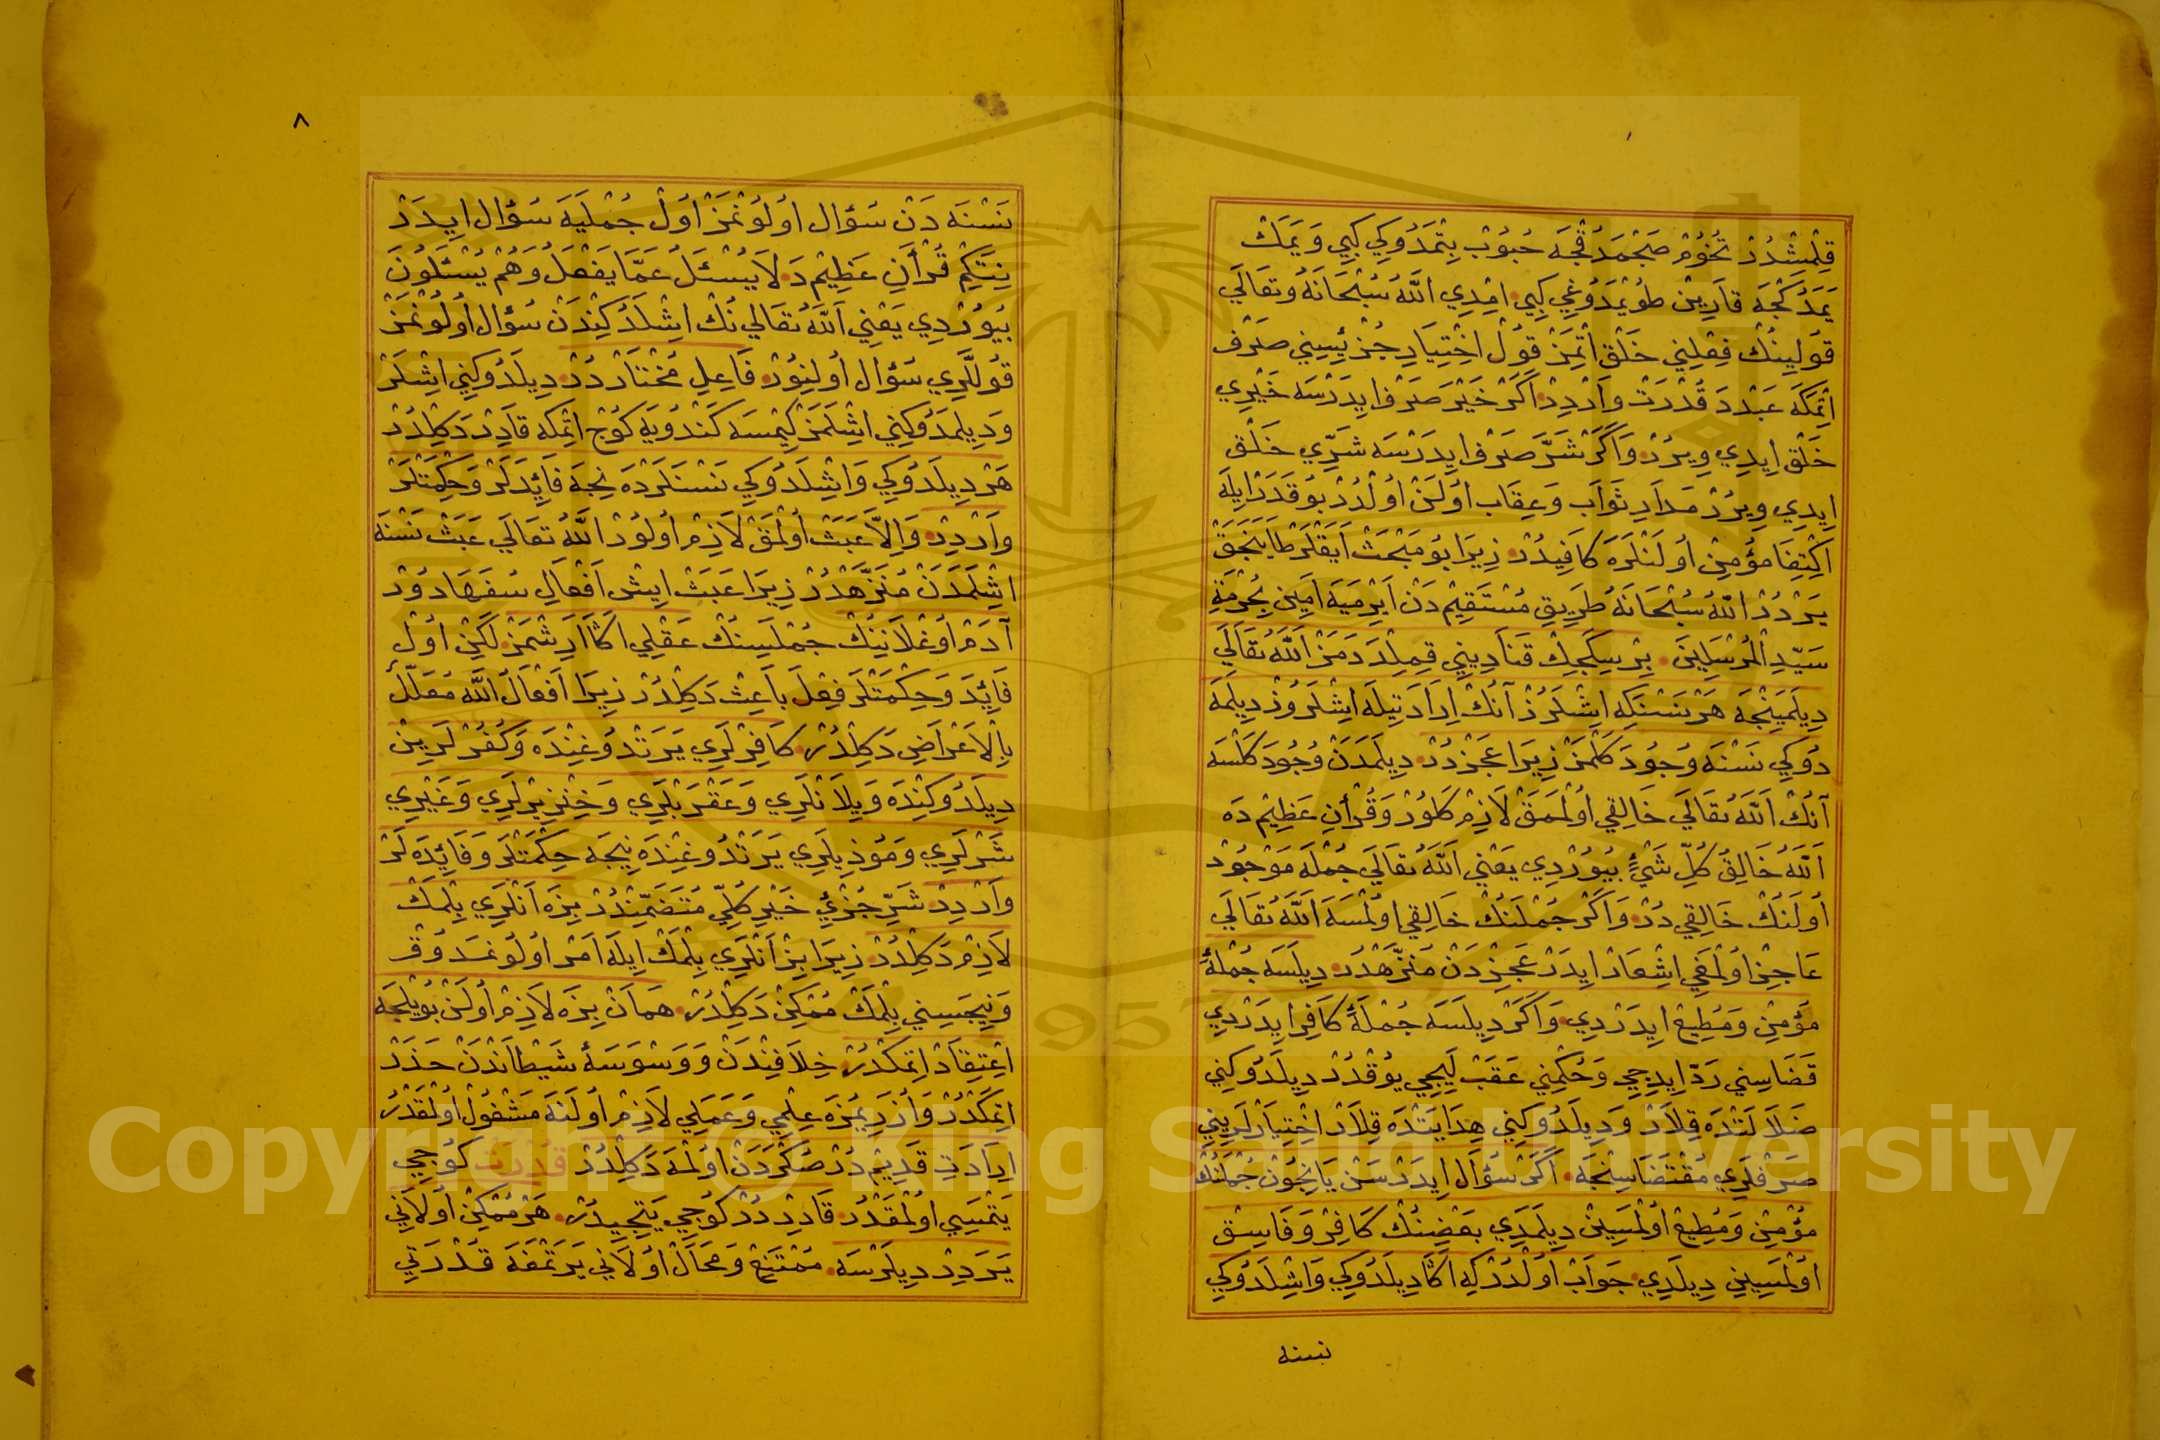 قِلْمِشْدُرْ تُخُومْ صَجْمَدُقْجَه حُبُوبْ بِتْمَدُوكِي كِبِي وَيَمَكْ
يَمَدُكْجَه قَارِينْ طُويْمَدُوغِي كِبِي اِمْدِي اَللّٰهُ سُبْحَانَهُ وَتَعَالَي
قُولِينُكْ فِعْلِنِي خَلْق اِتْمَزْ قُولْ اِخْتِيَارِ جُزْئِيسِنِي صَرْف
اِتْمَكَه عَبْدَدَ قُدْرَتْ وَارْدِرْ اَكَرْ خَيْرَ صَرْف اِيدَرْسَه خَيْرِي
خَلْق اِيدِي وِيرُرْ وَاَكَرْ شَرَّ صَرْف اِيدَرْسَه شَرِّي خَلْق
اِيدِي وِيرُرْ مَدَارِ ثَوَاب وَعِقَاب اُولَنْ اُولْدُرْ بُو قَدَرْ اِيلَه
اِكْتِفَا مُؤْمِنْ اُولَنْلَرَه كَافِيدُرْ زِيرَا بُو مَبْحَثْ اَيَقْلَرْ طَايَنَجَقْ
يَرْدُرْ اَللّٰهُ سُبْحَانَهُ طَرِيقِ مُسْتَقِيمْ دَنْ اَيِرْمَيَه اَمِين بِحُرْمَةِ
سَيِّدِ الْمُرْسَلِينَ بِرْ سِكَجِكْ قَنَادِينِي قِمِلْدَدَمَزْ اَللّٰهُ تَعَالَي
دِيلَمَيِنْجَه هَرْنَسْنَكِه اِشْلَرُزْ اَنُكْ اِرَادَتِيلَه اِشْلَرُوزْ دِيلَمَه
دُوكِي نَسْنَه وُجُودَ كَلْمَزْ زِيرَا عَجَزْدُرْ دِيلَمَدَنْ وُجُودَ كَلْسَه
اَنُكْ اَللّٰهُ تَعَالَي خَالِقِي اُولْمَمَقْ لَازِمْ كَلُورْ وَقُرْأَنِ عَظِيمْ دَه
اَللّٰهُ خَالِقُ كُلِّ شَيْءٍ بُيُورْدِي يَعْنِي اَللّٰهُ تَعَالَي جُمْلَه مَوْجُودْ
اُولَنَكْ خَالِقِي دُرْ وَاَكَرْ جُمْلَنُكْ خَالِقِي اُولْمَسَه اَللّٰهُ تَعَالَي
عَاجِزْ اُولْمَغِي اِشْعَارْ اِيدَرْ عَجِزْدَنْ مُنَزَّهْدُر دِيلَسَه جُمْلَهٔ
مُؤْمِنْ وَمُطِيعْ اِيدَرْدِي وَاَكَرْ دِيلَسَه جُمْلَهٔ كَافِر اِيدَرْدِي
قَضَاسِنِي رَدّ اِيدِجِي وَحُكْمِنِي عَقَبْ لَيِجِي يُوقْدُرْ دِيلَدُوكِنِي
ضَلَالَتْدَه قِلَارْ وَدِيلَدُوكِنِي هِدَايَتْدَه قِلَارْ اِخْتِيَارْلَرِينِي
صَرْفْلَرِي مُقْتَضَاسِنْجَه اَكَرْ سُؤَال اِيدَرْسَنْ يَا نِيجُونْ جُمْلَنُكْ
مُؤْمِنْ وَمُطِيعْ اُولْمَسِينْ دِيلَمَدِي بَعْضِنُكْ كَافِرْ وَفَاسِقْ
اُولْمَسِينِ دِيلَدِي جَوَابْ اُولْدُرْكِه اَكَا دِيلَدُوكِي وَاِشْلَدُوكِي
نسنه
٨
نَسْنَه دَنْ سُؤَال اُولُونْمَزْ اُولْ جُمْلَيَه سُؤَال اِيدَرْ
نِتَكِمْ قُرْأَنِ عَظِيمْ دَ لَا يُسْئَلُ عَمَّا يَفْعَلُ وَهُمْ يُسْئَلُونَ
بُيُورْدِي يَعْنِي اَللّٰهُ تَعَالَي نُكْ اِشْلَدُكِنْدَنْ سُؤَال اُولُونْمَزْ
قُولْلَرِي سُؤَال اُولِنُورْ فَاعِلِ مُخْتَارْدُرْ دِيلَدُوكِنِي اِشْلَرْ
وَدِيلَمَدُوكِنِي اِشْلَمَزْ كِيمْسَه كَنْدُويَه كُوجْ اِتْمَكه قَادِرْ دَكِلْدُرْ
هَرْ دِيلَدُوكِي وَاِشْلَدُوكِي نَسْنَلَرْدَه نِجَه فَائِدَلَرْ وَحِكْمَتْلَرْ
وَارْدِرْ وَاِلَّا عَبَثْ اُولْمَقْ لَازِمْ اُولُورْ اَللّٰهُ تَعَالَي عَبَثْ نَسْنَه
اِشْلَمَدَنْ مُنَزَّهْدُرْ زِيرَا عَبَثْ اِيشْ اَفْعَالِ سُفَهَادُرْ
آدَمْ اُوغْلَانِينُكْ جُمْلَسِنُكْ عَقْلِي اَكَا اَرِشْمَزْ لَكِنْ اُولْ
فَائِدَ وَحِكْمَتْلَرْ فِعْلَ بَاعِثْ دَكِلْدُرْ زِيرَا اَفْعَالُ اللّٰه مُعَلَّلٌ
بِالْاَعْرَاضِ دَكِلْدُرْ كَافِرْلَرِي يَرَتْدُوغِنْدَه وَكُفُرْلَرِينْ
دِيلَدُوكِنْدَه وَيِلَانْلَرِي وَعَقْرَبْلَرِي وَخِنْزِيرْلَرِي وَغَيْرِي
شَرْلَرِي وَمُوذِيلَرِي يَرَتْدُوغِنْدَه نِيجَه حِكْمَتْلَرْ وَفَائِدَه لَرْ
وَارْدِرْ شَرِّ جُزْئِي خَيْرِ كُلِّي مُتَضَمِّنْدُرْ بِزَه اَنْلَرِي بِلْمَكْ
لَازِمْ دَكِلْدُرْ زِيرَا بِزْ اَنْلَرِي بِلْمَكْ اِيلَه اَمَرْ اُولُونْمَدُوقْ
وَنِيجَسِنِي بِلْمَكْ مُمْكِنْ دَكِلْدُرْ هَمَانْ بِزَه لَازِمْ اُولَنْ بُويْلَجَه
اِعْتِقَادْ اِتْمَكْدُرْ خِلَافِنْدَنْ وَوَسْوَسَهٔ شَيْطَانْدَنْ حَذَرْ
اِتْمَكْدُرْ وَاُزَرِيمُزَه عِلْمِي وَعَمَلِي لَازِمْ اُولَنَه مَشْغُولْ اُولْمَقْدُرْ
اِرَادَتِ قَدِيمْ دُرْ صُكْرَدَنْ اُولْمَه دَكِلْدُرْ قُدْرَتْ كُوجِي
يَتْمَسِي اُولْمَقْدُرْ قَادِرْدُرْ كُوجِي يَتِجِيدُرْ هَرْ مُمْكِنْ اُولَانِي
يَرَدِرْ دِيلَرْسَه مُمْتَنِعْ وَمَحَالْ اُولَانِي يَرَتْمَغَه قُدْرَتِي
Copyright © King Saud University
1957